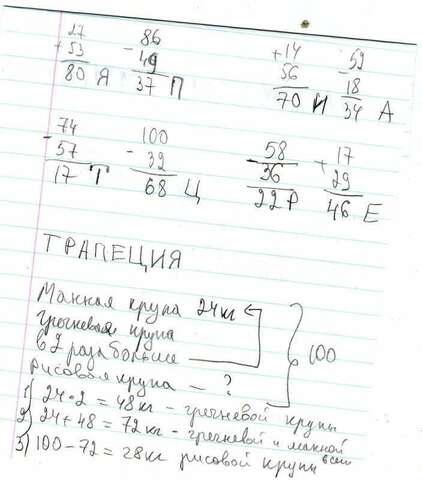 27 86 +14 52
+53 - 49 56 - 18
80 Я 37 П 70 И 34 А
74 100 58 + 17
- 57 - 32 - 36 29
17 Т 68 Ц 22 Р 46 Е
ТРАПЕЦИЯ
Манная крупа 24кг
гречневая крупа
в 2 раза больше 100
рисовая крупа - ?
1) 24·2 = 48кг - гречневой крупы
2) 24+48 = 72кг - гречневой и манной
3) 100-72 = 28кг рисовой крупы всего